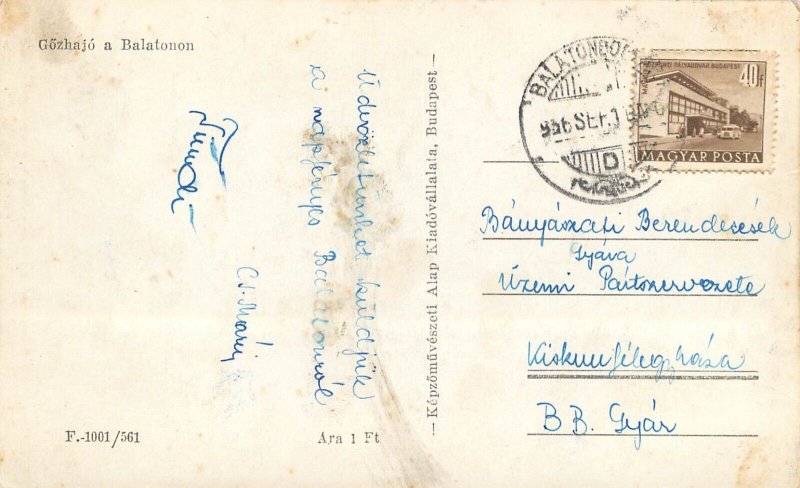 Gőzhajó a Balatonon
Üdvözletünket küldjük
a napfényes Balatonról
Cs. Mári
F.-1001/561
Ára 1 Ft
—Képzőművészeti Alap Kiadóvállalata, Budapest—
KÖZPONTI PÁLYAUDVAR BUDAPEST
40f
MAGYAR POSTA
956 SEP.
D
Bányászati Berendezések
Gyára
Üzemi Pártszervezete
Kiskunfélegyháza
B B. Gyár